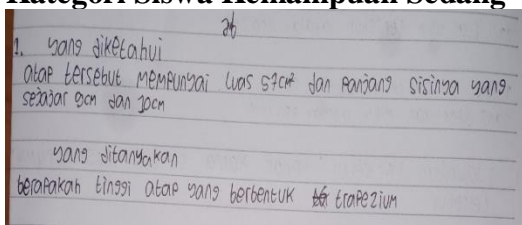 Kategori Siswa Kemampuan Sedang
1. yang diketahui
atap tersebut mempunyai luas 57cm² dan panjang sisinya yang
sejajar 9cm dan 10cm
yang ditanyakan
berapakah tinggi atap yang berbentuk trapezium